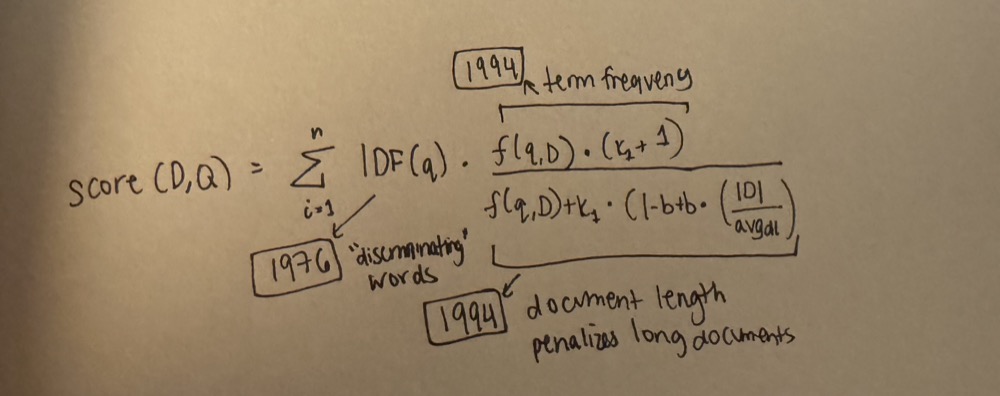 1994
term frequency
score (D,Q) = n ∑ i=1 IDF(q) · f(q,D) · (k1 + 1)
f(q,D) + k1 · (1-b+b · (|D| / avgdl)
1976
"discriminating"
words
1994
document length
penalizes long documents